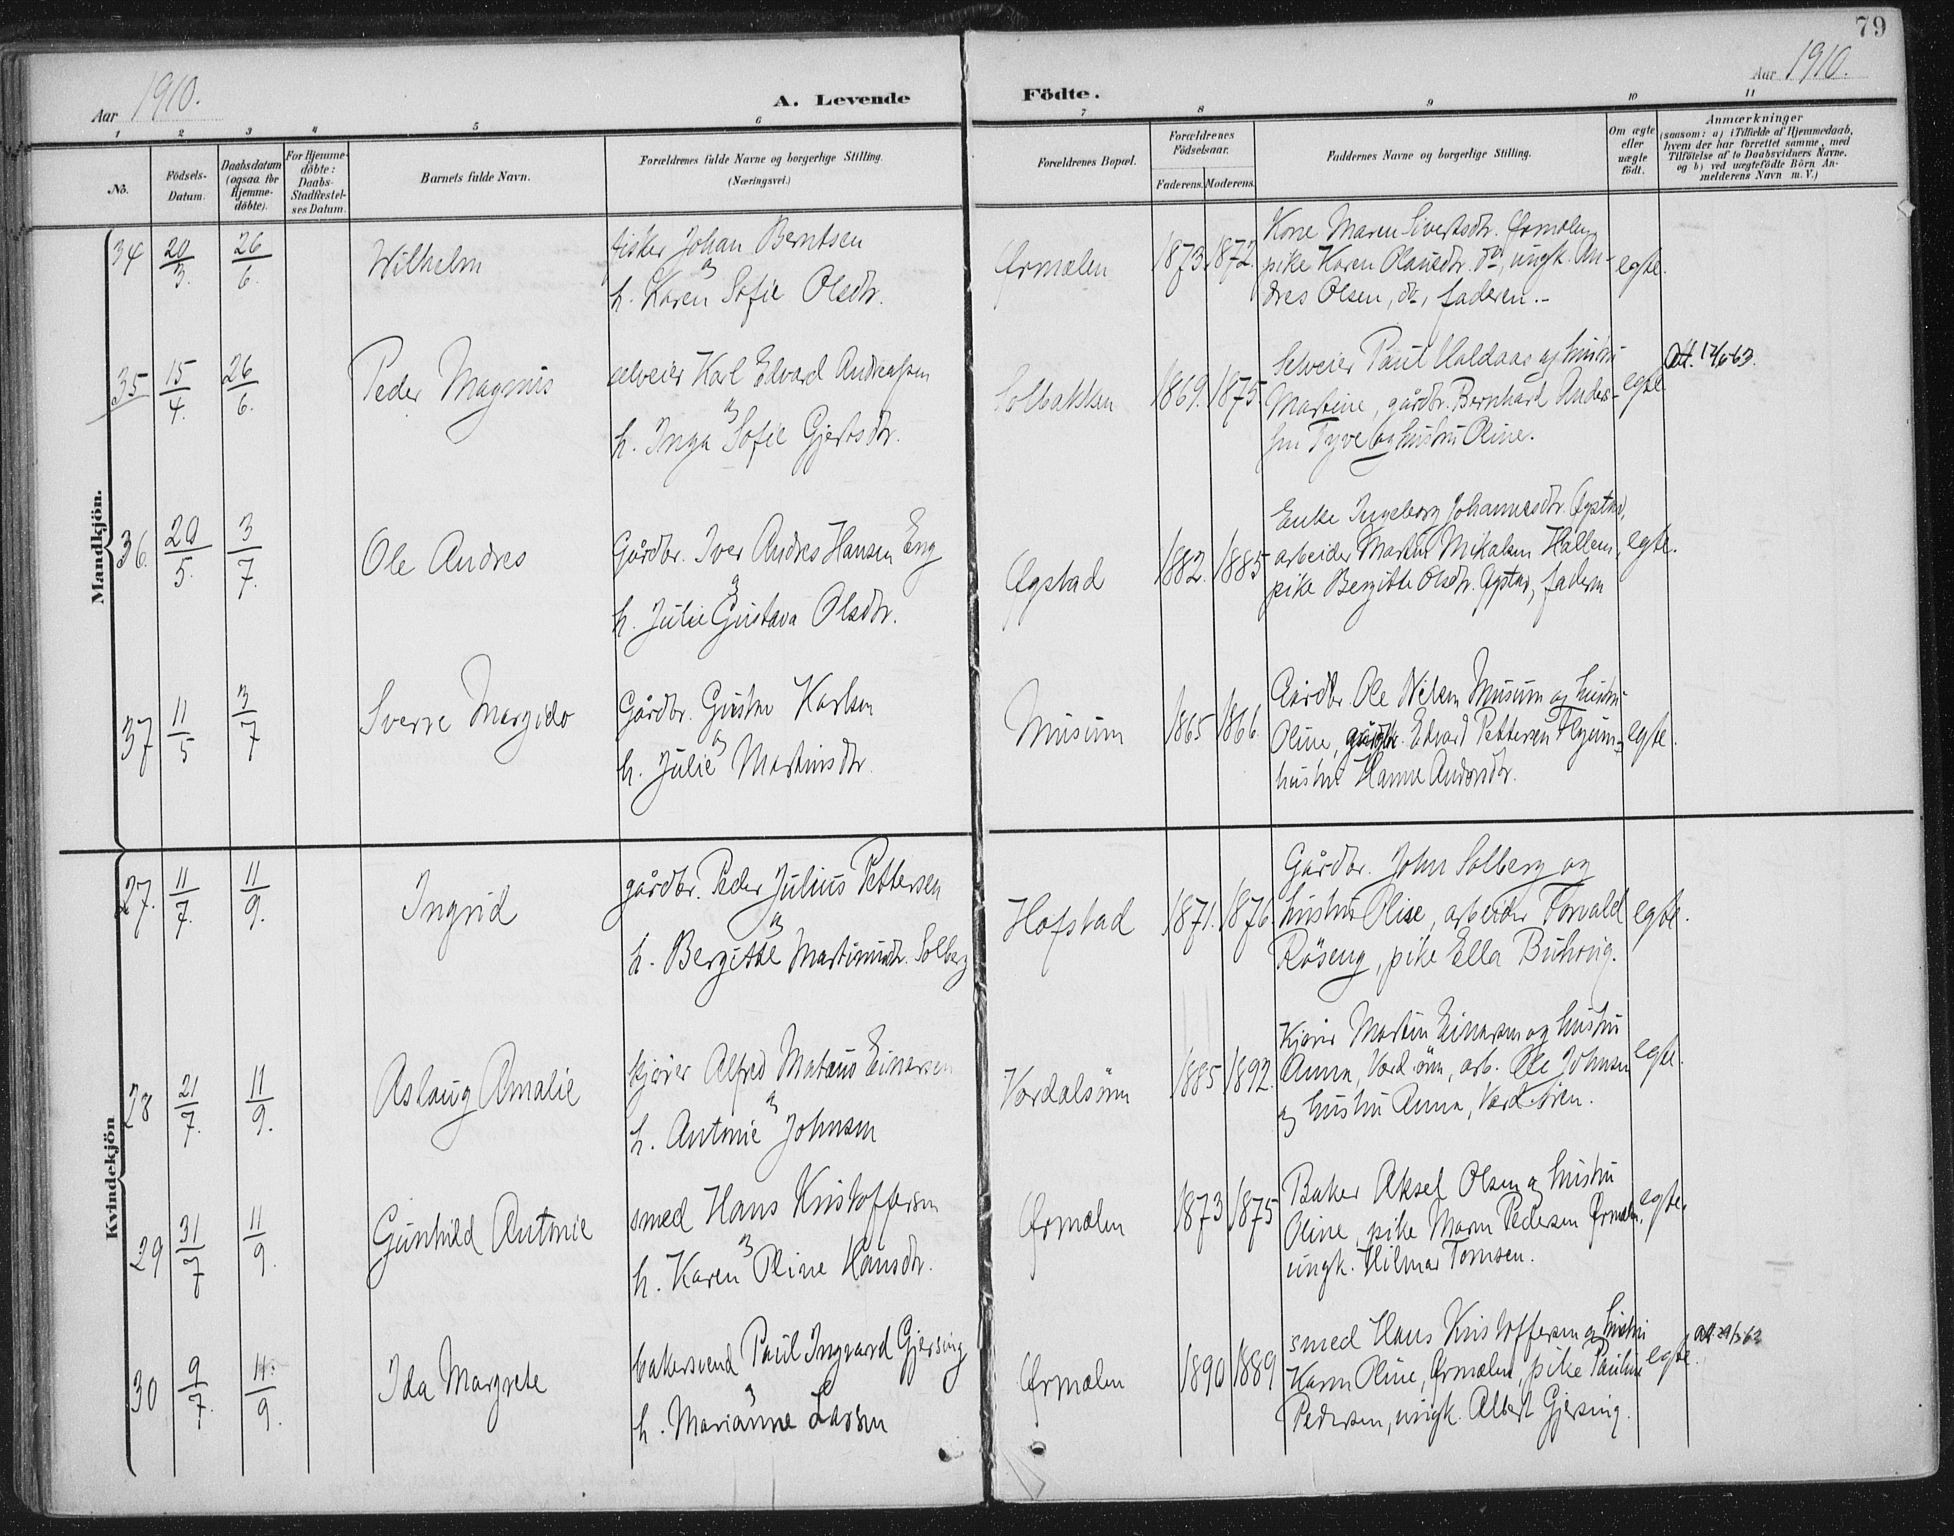 79
Aar 1910.
A. Levende Födte.
Aar 1910.
1 2 3 4 5 6 7 8 9 10 11
No.
Födsels-
Datum.
Daabsdatum
(ogsaa for
Hjemme-
döbte).
For Hjemme-
döbte:
Daabs-
Stadfæstel-
ses Datum.
Barnets fulde Navn.
Forældrenes fulde Navne og borgerlige Stilling.
(Næringsvei.)
Forældrenes Bopæl.
Forældrenes
Födselsaar.
Faderens. Moderens.
Faddernes Navne og borgerlige Stilling.
Om ægte
eller
uægte
födt.
Anmærkninger
(saasom: a) i Tilfælde af Hjemmedaab,
hvem der har forrettet samme, med
Tilföielse af to Daabsvidners Navne.
og b) ved uægtefödte Börn An-
melderens Navn m. V.)
Mandkjön.
34 20/3. 26/6. Wilhelm
fisker Johan Berntsen
h. Karen Sofie Olsdtr.
Ørmelen 1873. 1872
Kone Maren Sivertsdtr. Ørmelen,
pike Karen Olausdtr. do, ungk. An-
dres Olsen, do, faderen.-
egte.
35 15/4. 26/6. Peder Magnus
selveier Karl Edvard Andreassen
h. Inga Sofie Gjertsdtr.
Solbakken 1869. 1875
Selveier Paul Haldaas og hustru
Martine, gårdbr. Bernhard Anders-
sen Tyve og hustru Oline.
egte
36. 20/5. 3/7. Ole Andres
Gårdbr. Iver Andres Hansen Eng
h. Julie Gustava Olsdtr.
Øgstad 1882. 1885
Enke Ingeborg Johannesdtr. Øgstad,
arbeider Martin Mikalsen Hallem,
pike Bergitte Olsdtr. Øgstad, faderen
egte.
37 11/5 3/7 Sverre Margido
Gårdbr. Gustav Karlsen
h. Julie Martinsdtr.
Musum 1865 1866.
Gårdbr. Ole Nilsen Musum og hustru
Oline, gårdbr. Edvard Pettersen
hustru Hanna Andersdtr.
egte.
Kvindekjön
27. 11/7. 11/9. Ingrid
gårdbr. Peder Julius Pettersen
h. Bergitte Martinusdtr. Solberg
Hofstad 1871. 1876.
Gårdbr. John Solberg og
hustru Olise, arbeider Torvald
Röseng, pike Ella Buhrig.
egte.
28 21/7. 11/9. Aslaug Amalie
kjører Alfred Mataus Einarsen
h. Antonie Johnsen
Værdalsøren 1885 1892.
Kjører Martin Einarsen og hustru
Anna, Værdøren, arb. Ole Johnsen
og hustru Anna, Værdsøren.
egte.
29 31/7 11/9. Gunhild Antonie
smed Hans Kristoffersen
h. Karen Oline Hansdtr.
Ørmelen 1873 1875
Baker Aksel Olsen og hustru
Oline, pike Maren Pedersen Ørmelen,
ungk. Hilmar Tomsen.
egte.
30 9/7. 11./9. Ida Margrete
bakersvend Paul Ingvard Gjersing
h. Marianne Larsen
Ørmelen 1890 1889
smed Hans Kristoffersen og hustru
Karen Oline, Ørmelen, pike Pauline
Pedersen, ungk. Albert Gjersing.
egte.